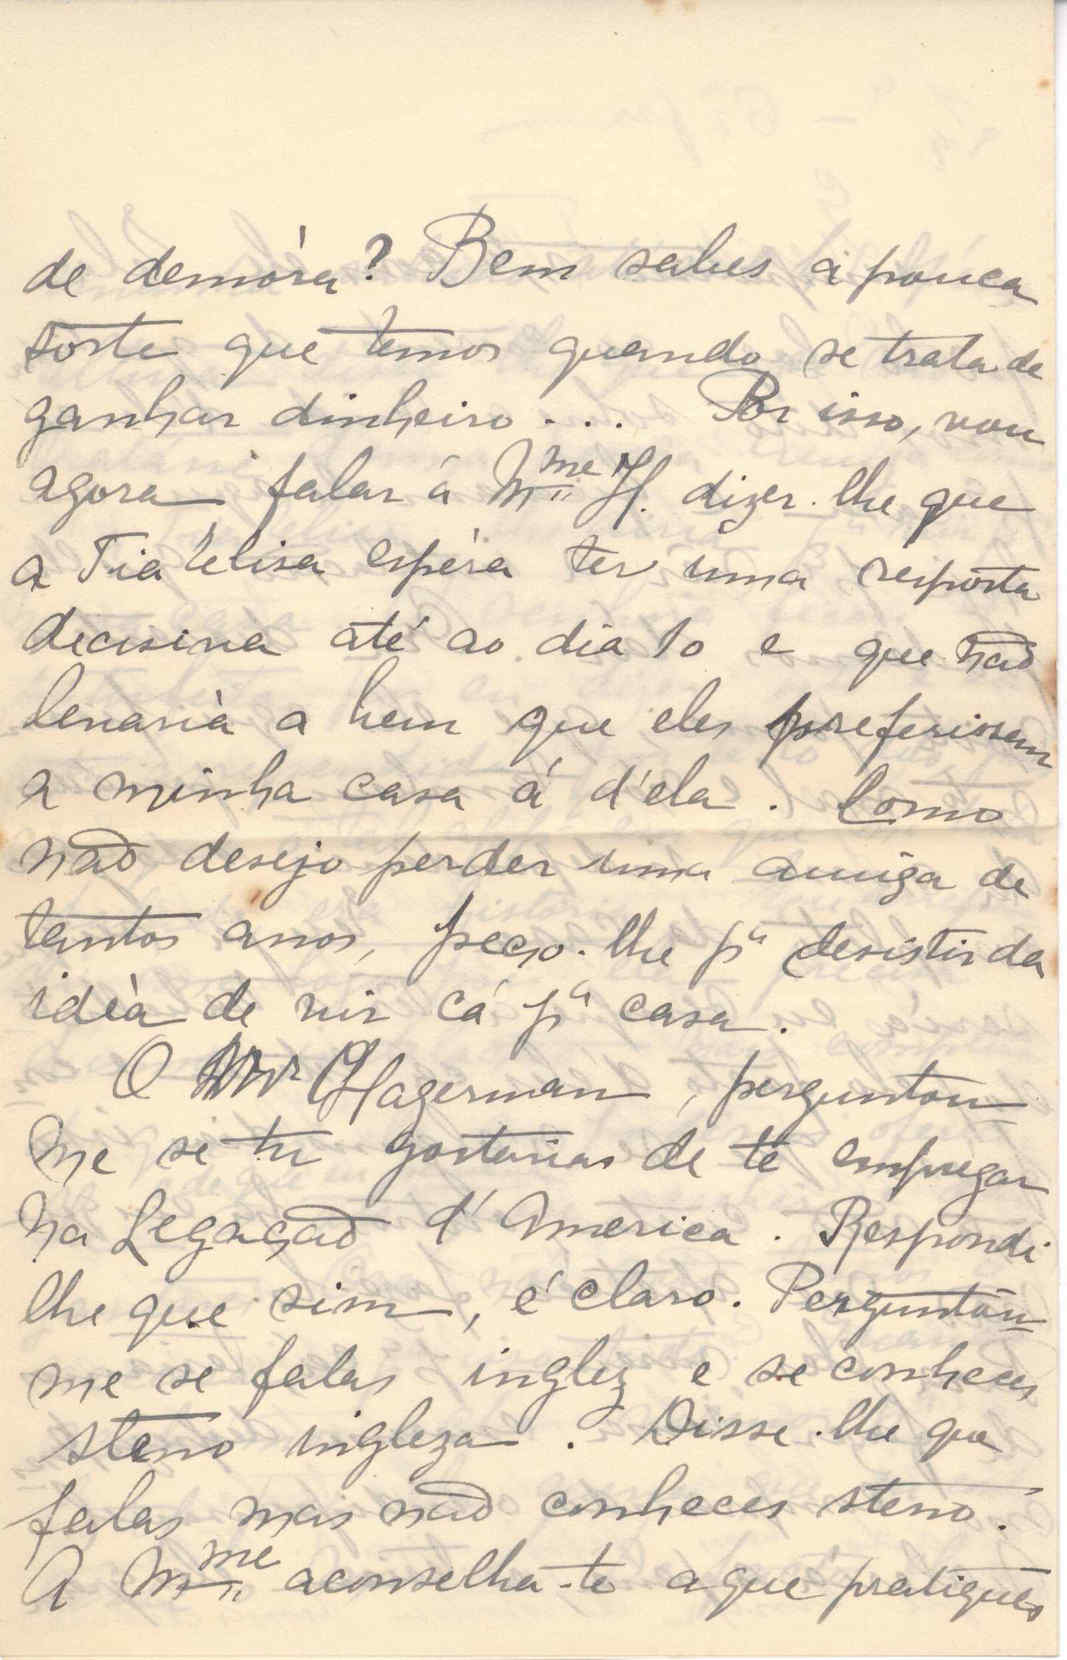 de demóra? Bem sabes a pouca
sorte que temos quando se trata de
ganhar dinheiro.... Por isso, vou
agora falar á Mme H. dizer-lhe que
a Tia Elisa espéra ter uma resposta
decisiva até ao dia 10 e que não
levaria a bem que eles preferissem
a minha casa á d'ela. Como
não desejo perder uma amiga de
tantos anos, peço-lhe pa desistir da
idèa de vir cá pa casa.
O Mr Hagerman, perguntou
me se tu gostarias de te empregar
na Legação d'America. Respondi
lhe que sim, é claro. Perguntou-
me se falas inglez e se conheces
steno ingleza. Disse-lhe que
falas mas não conheces steno.
A Mme aconselha-te a que pratiques